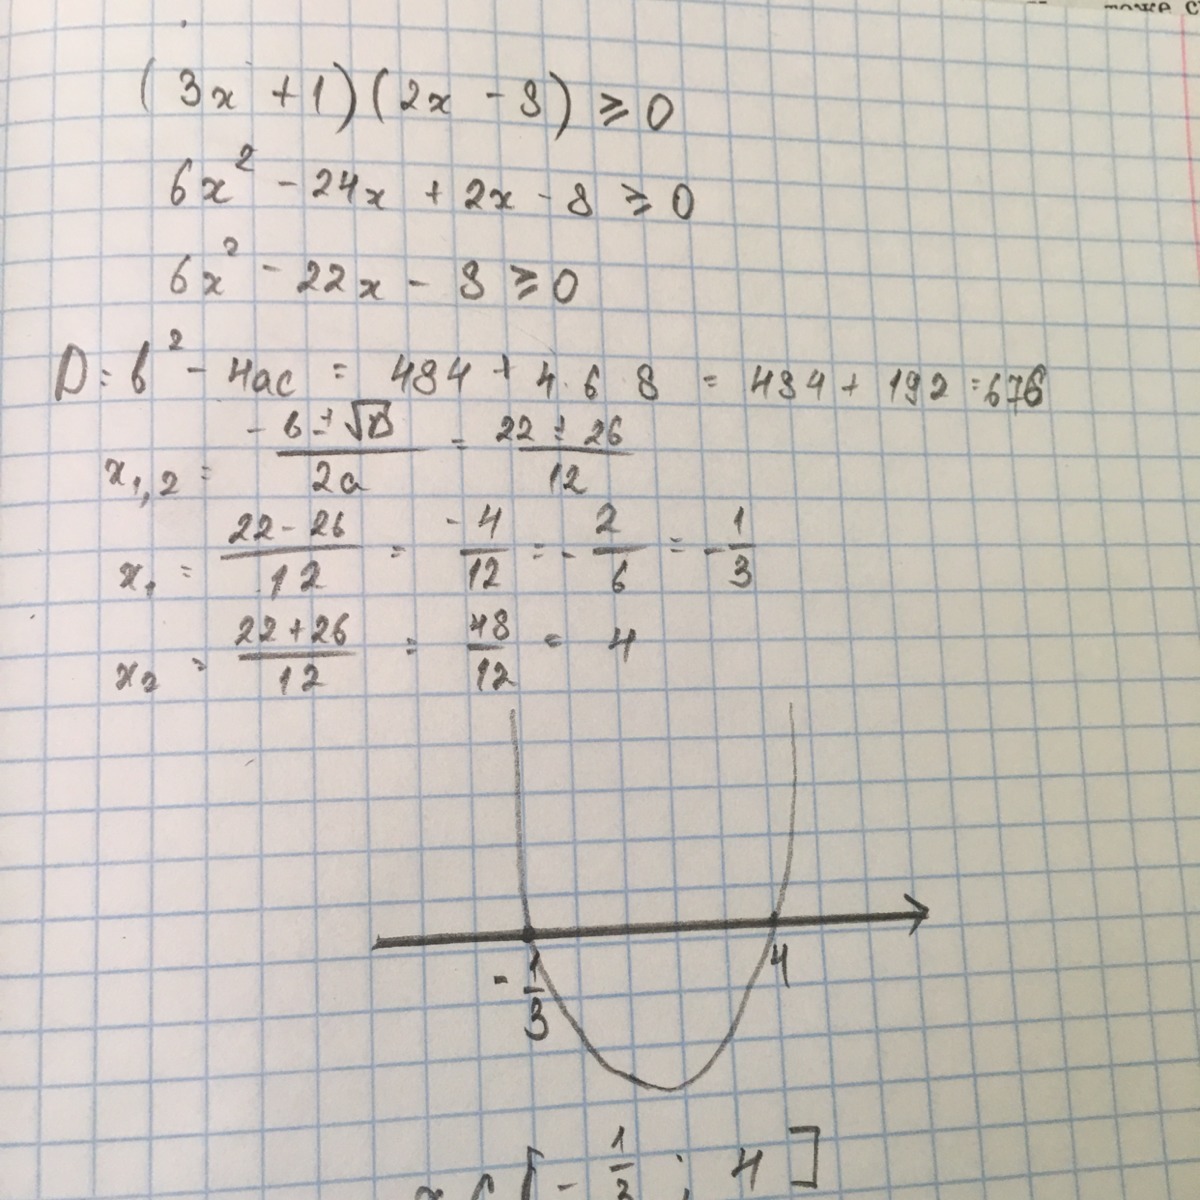 (3x + 1)(2x - 8) ≥ 0
6x² - 24x + 2x - 8 ≥ 0
6x² - 22x - 8 ≥ 0
D = b² - 4ac = 484 + 4·6·8 = 484 + 192 = 676
x₁,₂ = (-b ± √D)/(2a) = (22 ± 26)/12
x₁ = (22 - 26)/12 = -4/12 = -2/6 = -1/3
x₂ = (22 + 26)/12 = 48/12 = 4
-1/3 4
x ∈ [-1/3 ; 4]